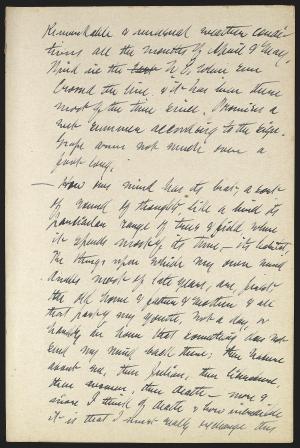 Remarkable & unusual weather condi-
tions all the months of April & May,
Wind in the N.E. when Sun
Crossed the line & it has been there
most of the time since. Promises a
wet summer according to the sign.
Grape arms not much over a
foot long.
— How one's mind has its beat, a sort
of round of thought, like a bird its
particular range of tree & field, where
it spends most of its time — its habitat,
The things upon which my own mind
dwells most of late years, are, first
the old home & father & mother & all
that part of my youth, not a day, or
hardly an hour that something does not
send my mind back there; then nature
about me, then Julian, then literature,
then women, then death — more &
more I think of death & how inevitable
it is that I must really exchange this